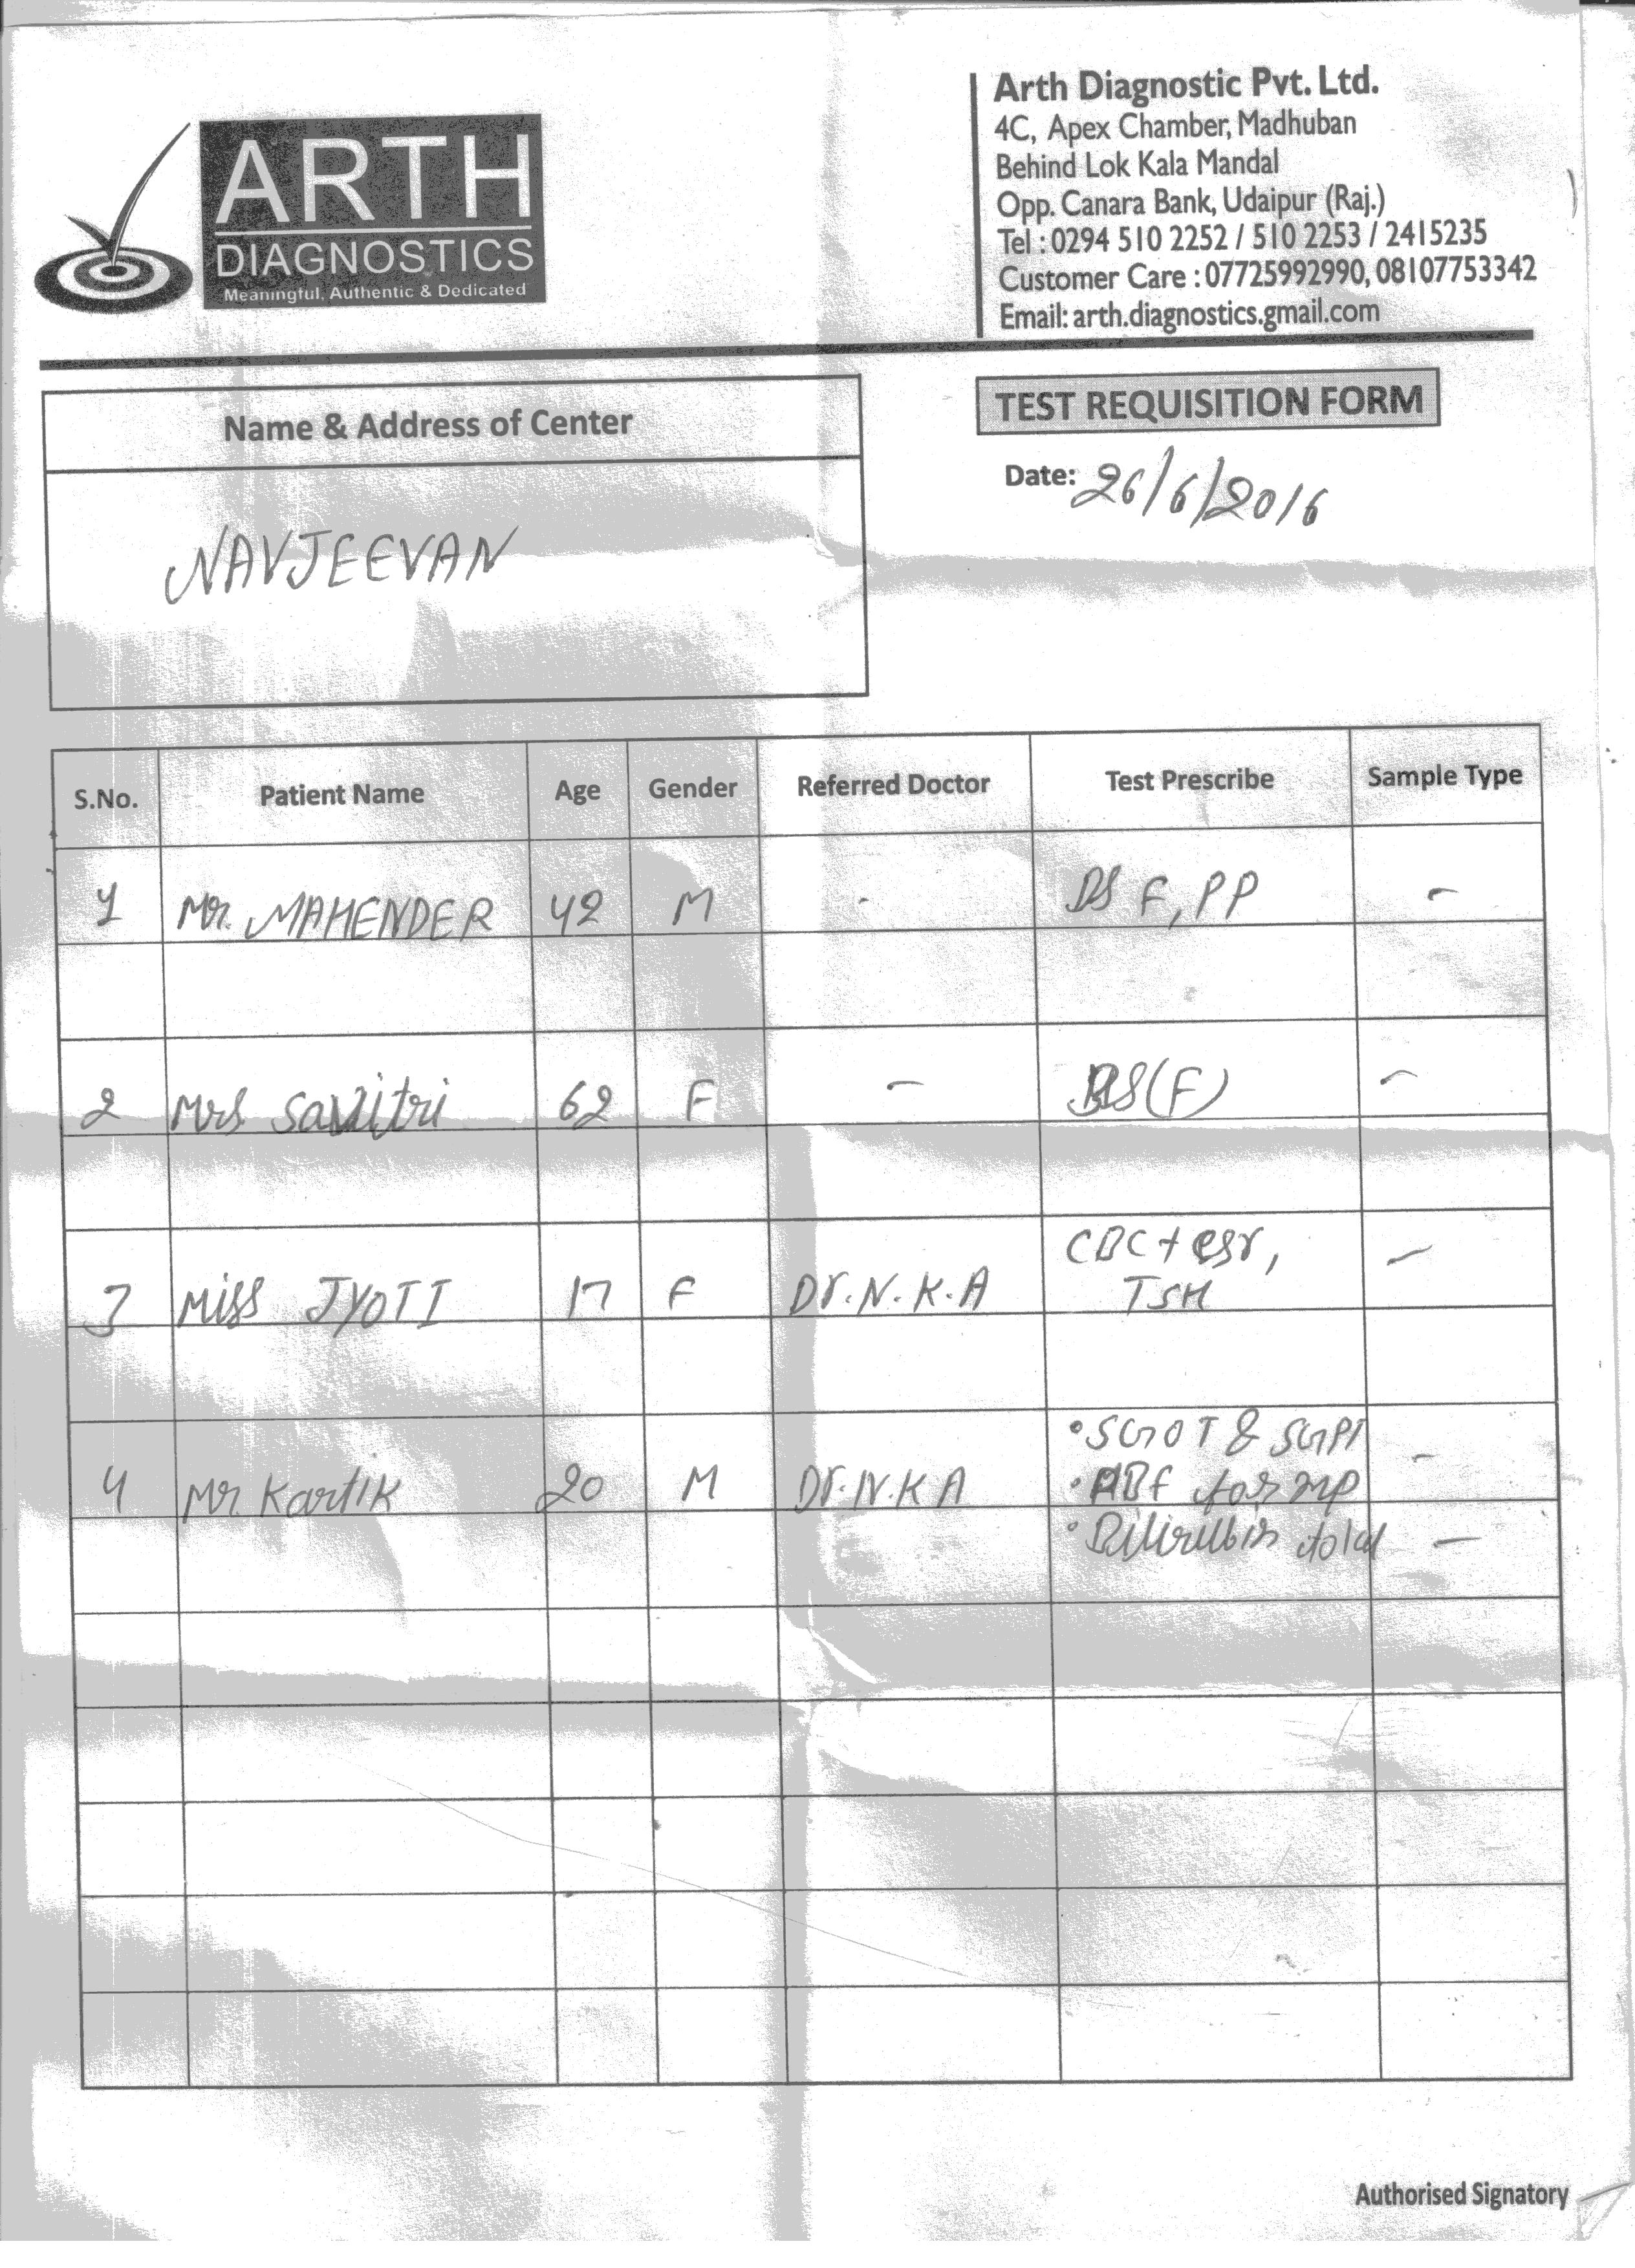 ARTH
DIAGNOSTICS
Meaningful, Authentic & Dedicated
Arth Diagnostic Pvt. Ltd.
4C, Apex Chamber, Madhuban
Behind Lok Kala Mandal
Opp. Canara Bank, Udaipur (Raj.)
Tel : 0294 510 2252 / 510 2253 / 2415235
Customer Care : 07725992990, 08107753342
Email: arth.diagnostics.gmail.com
Name & Address of Center
NAVJEEVAN
TEST REQUISITION FORM
Date: 26/6/2016
S.No. Patient Name Age Gender Referred Doctor Test Prescribe Sample Type
1 Mr. MAHENDER 42 M - BS F, PP -
2 Mrs Savitri 62 F - BS(F) -
3 Miss JYOTI 17 F Dr. N. K. A CBC + esr, -
TSH
4 Mr. Kartik 20 M Dr. N. K A • SGOT & SGPT -
• for mp
• Bilirubin total -
Authorised Signatory